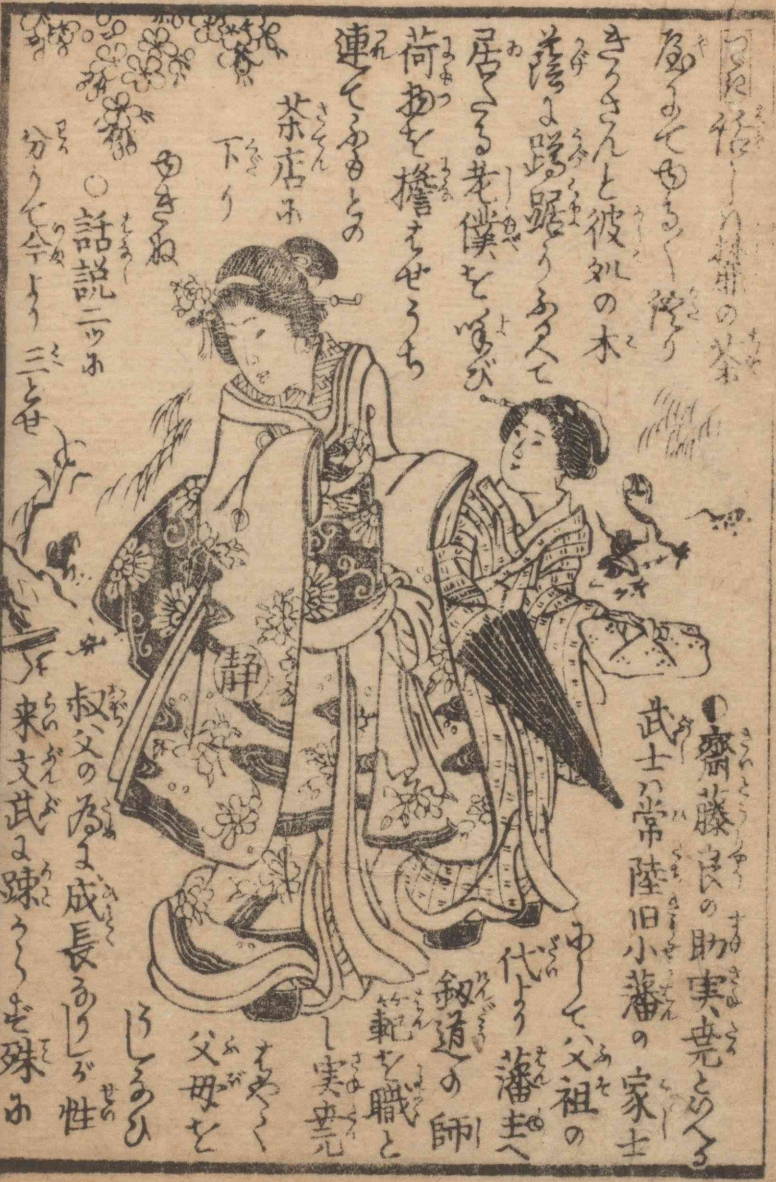 つゞき
茶
屋にてゆるく
きかさんと彼処の木
蔭に蹲踞うふくて
居たる老僕を呼び
荷物を擔はせうち
連てふもとの
茶店に
下り
ゆきぬ
○話説二ツに
分りて今より三とせ
静
齋藤良の助実堯といへる
武士ハ常陸旧小藩の家士
にして父祖の
代より藩主へ
釼道の師
範を職と
し実堯
はやく
父母を
うしなひ
叔父の為に成長なりしが性
来文武に疎からず殊に